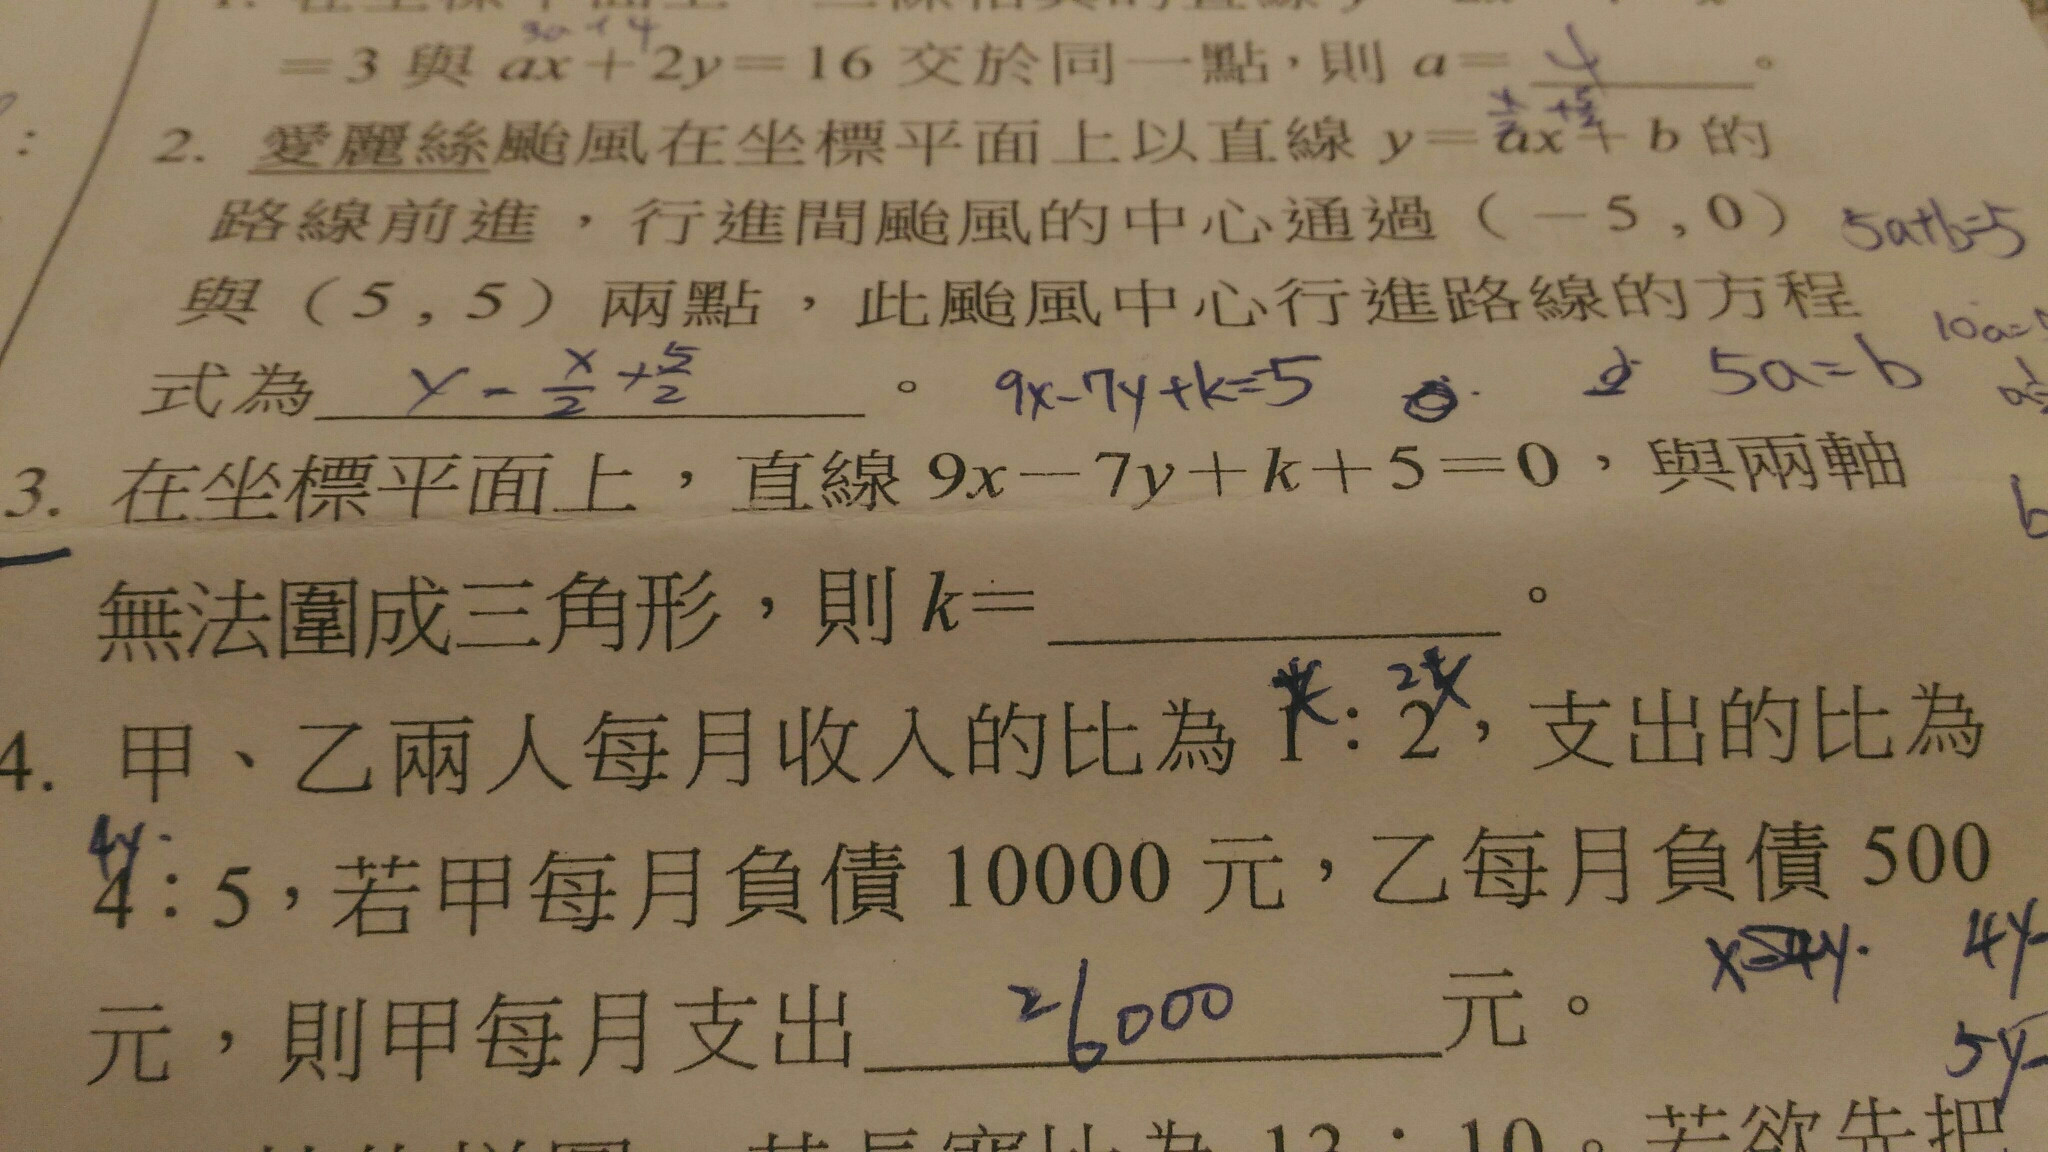 3a+4
=3 與 ax+2y=16 交於同一點,則 a= 4 。
2. 愛麗絲颱風在坐標平面上以直線 y=ax+b 的
路線前進,行進間颱風的中心通過(-5,0)
5a+b=5
與(5,5)兩點,此颱風中心行進路線的方程
式為 y-x/2+5/2 。
9x-7y+k=5
5a=b
3. 在坐標平面上,直線 9x-7y+k+5=0,與兩軸
無法圍成三角形,則 k= 。
4. 甲、乙兩人每月收入的比為 1:2,支出的比為
4y
4:5,若甲每月負債 10000 元,乙每月負債 500
元,則甲每月支出 26000 元。
4y-
5y-
12:10。若欲先把